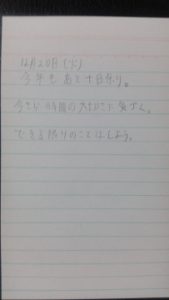 12月20日(火)
今年もあと十日余り。
今さら時間の大切さに気づく。
できる限りのことはしよう。